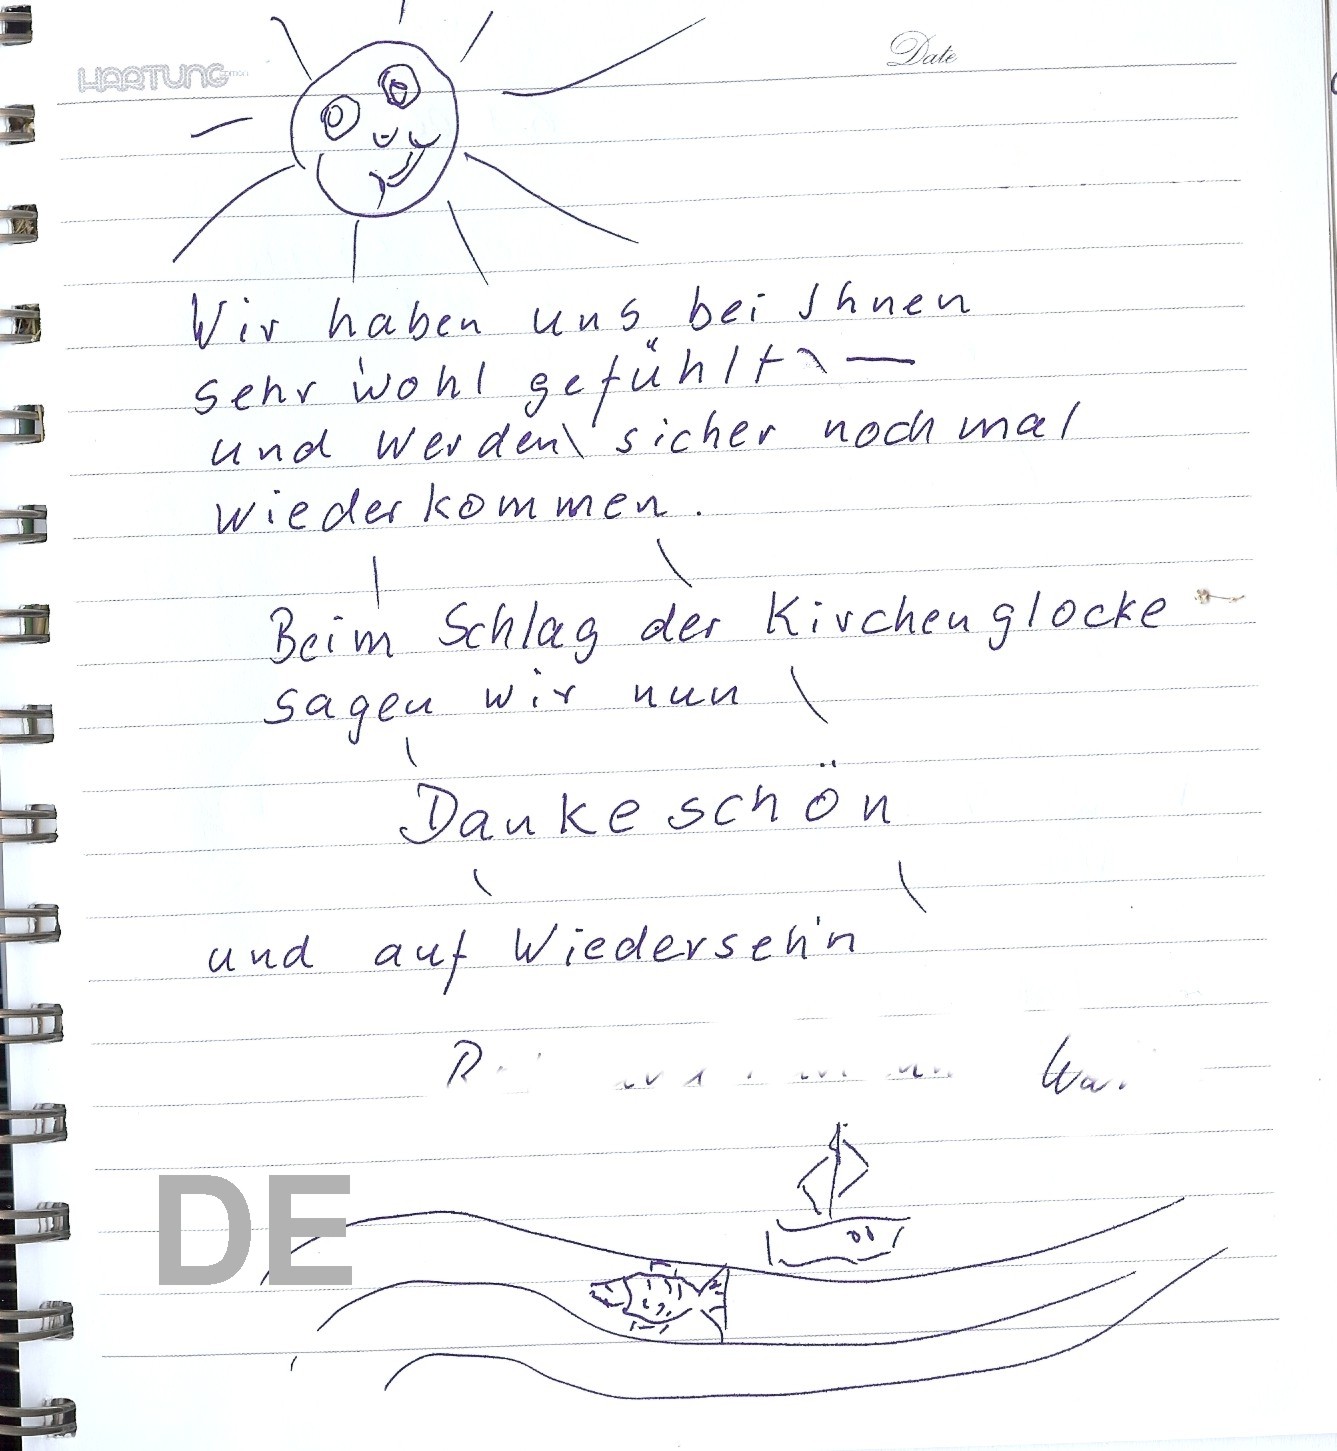 HARTUNG
Date
Wir haben uns bei Ihnen
sehr wohl gefühlt
und werden sicher nochmal
wiederkommen.
Beim Schlag der Kirchenglocke
sagen wir nun
Dankeschön
und auf Wiederseh'n
DE